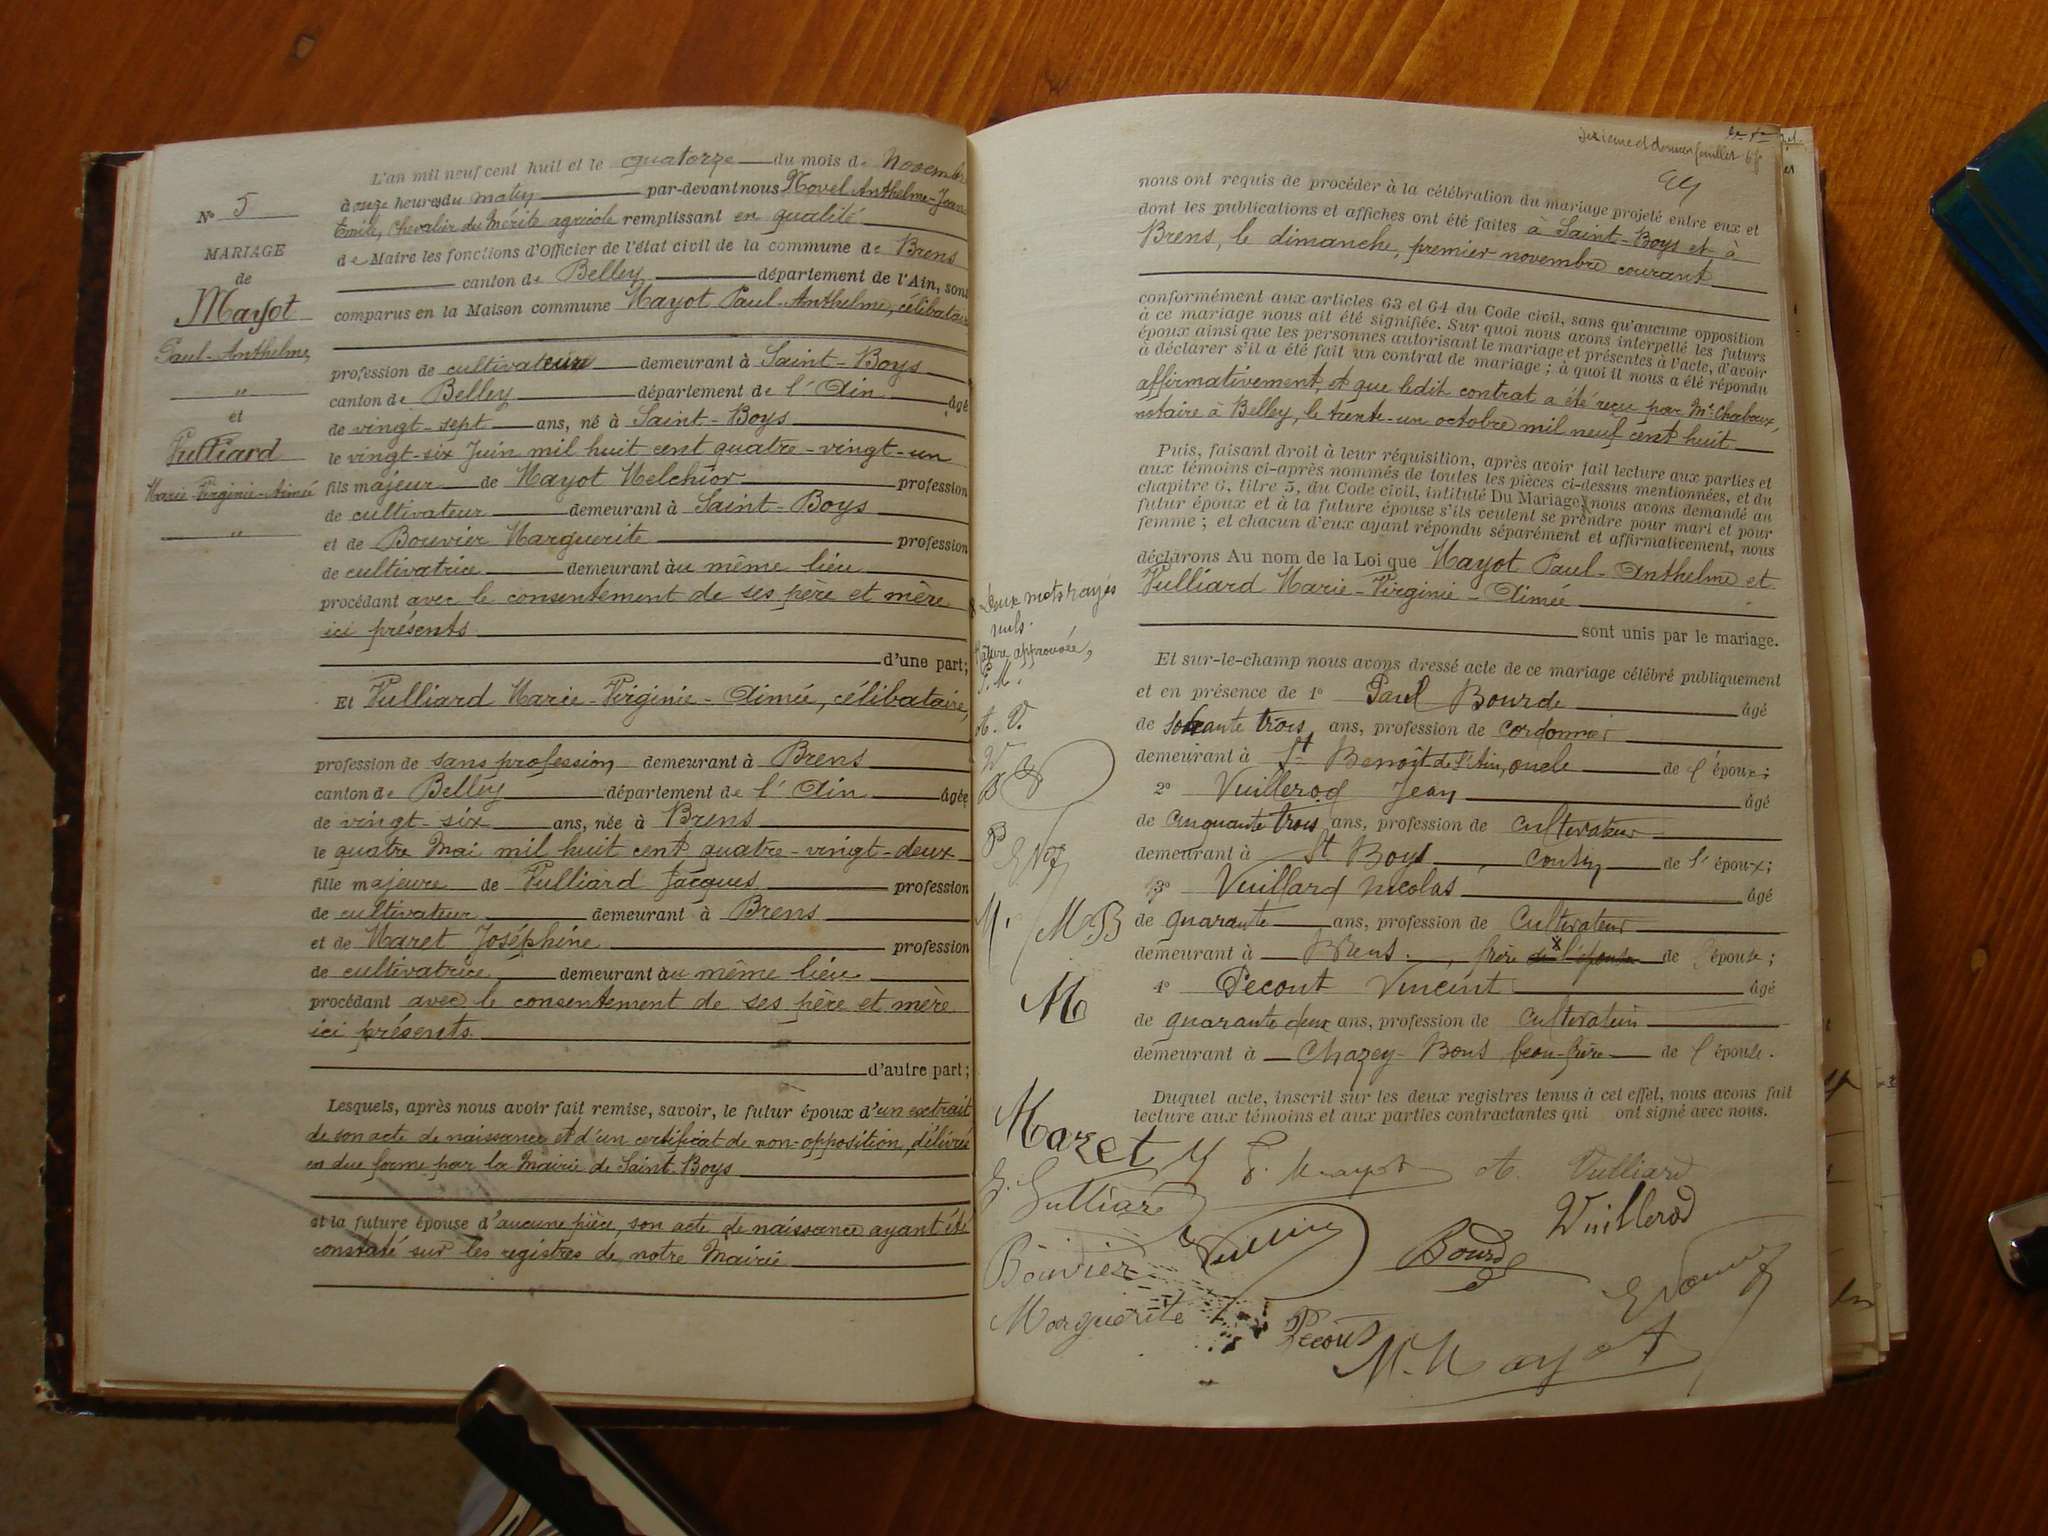 N° 5
MARIAGE
de
Mayot
Paul-Anthelme
"
et
Vulliard
Marie-Virginie-Aimée
"
L'an mil neuf cent huit et le quatorze du mois de Novembre
à onze heures du matin par-devant nous Novel Anthelme-Jean
Emile, Chevalier du Mérite agricole remplissant en qualité
de Maire les fonctions d'Officier de l'état civil de la commune de Brens
canton de Belley département de l'Ain, sont
comparus en la Maison commune Mayot Paul-Anthelme, célibataire
profession de cultivateur demeurant à Saint-Boys
canton de Belley département de l'Ain âgé
de vingt-sept ans, né à Saint-Boys
le vingt-six Juin mil huit cent quatre-vingt-un
fils majeur de Mayot Melchior profession
de cultivateur demeurant à Saint-Boys
et de Bouvier Marguerite profession
de cultivatrice demeurant au même lieu
procédant avec le consentement de ses père et mère
ici présents
d'une part;
Et Vulliard Marie-Virginie-Aimée, célibataire,
profession de sans profession demeurant à Brens
canton de Belley département de l'Ain âgée
de vingt-six ans, née à Brens
le quatre Mai mil huit cent quatre-vingt-deux
fille majeure de Vulliard Jacques profession
de cultivateur demeurant à Brens
et de Maret Joséphine profession
de cultivatrice demeurant au même lieu
procédant avec le consentement de ses père et mère
ici présents
d'autre part;
Lesquels, après nous avoir fait remise, savoir, le futur époux d'un extrait
de son acte de naissance et d'un certificat de non-opposition, délivré
en due forme par la Mairie de Saint-Boys
et la future épouse d'aucune pièce, son acte de naissance ayant été
constaté sur les registres de notre Mairie
nous ont requis de procéder à la célébration du mariage projeté entre eux et
dont les publications et affiches ont été faites à Saint-Boys et à
Brens, le dimanche, premier novembre courant
conformément aux articles 63 et 64 du Code civil, sans qu'aucune opposition
à ce mariage nous ait été signifiée. Sur quoi nous avons interpellé les futurs
époux ainsi que les personnes autorisant le mariage et présentes à l'acte, d'avoir
à déclarer s'il a été fait un contrat de mariage; à quoi il nous a été répondu
affirmativement, et que ledit contrat a été reçu par Me
notaire à Belley, le trente-un octobre mil neuf cent huit
Puis, faisant droit à leur réquisition, après avoir fait lecture aux parties et
aux témoins ci-après nommés de toutes les pièces ci-dessus mentionnées, et du
chapitre 6, titre 5, du Code civil, intitulé Du Mariage, nous avons demandé au
futur époux et à la future épouse s'ils veulent se prendre pour mari et pour
femme; et chacun d'eux ayant répondu séparément et affirmativement, nous
déclarons Au nom de la Loi que Mayot Paul-Anthelme et
Vulliard Marie-Virginie-Aimée
sont unis par le mariage.
Et sur-le-champ nous avons dressé acte de ce mariage célébré publiquement
et en présence de 1° Paul Bourde âgé
de soixante trois ans, profession de cordonnier
demeurant à St Benoît de l'Ain, oncle de l'époux;
2° Vuillerod Jean âgé
de cinquante trois ans, profession de cultivateur
demeurant à St Boys, cousin de l'époux;
3° Vuillard Nicolas âgé
de quarante ans, profession de Cultivateur
demeurant à Brens, frère de l'épouse de l'épouse;
4° Pecout Vincent âgé
de quarante deux ans, profession de cultivateur
demeurant à Chazey-Bons beau-frère de l'épouse.
Duquel acte, inscrit sur les deux registres tenus à cet effet, nous avons fait
lecture aux témoins et aux parties contractantes qui ont signé avec nous.
Deux mots rayés
nuls.
approuvée,
P. M.
A. V.
M. B
M
Maret
P. Mayot
A. Vulliard
Vuillerod
Bourde
Bouvier
Marguerite
Pecout
M. Mayot